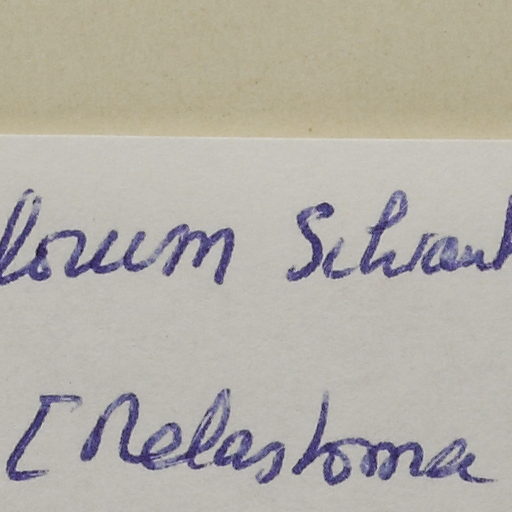 lorum Schrank
[Melastoma